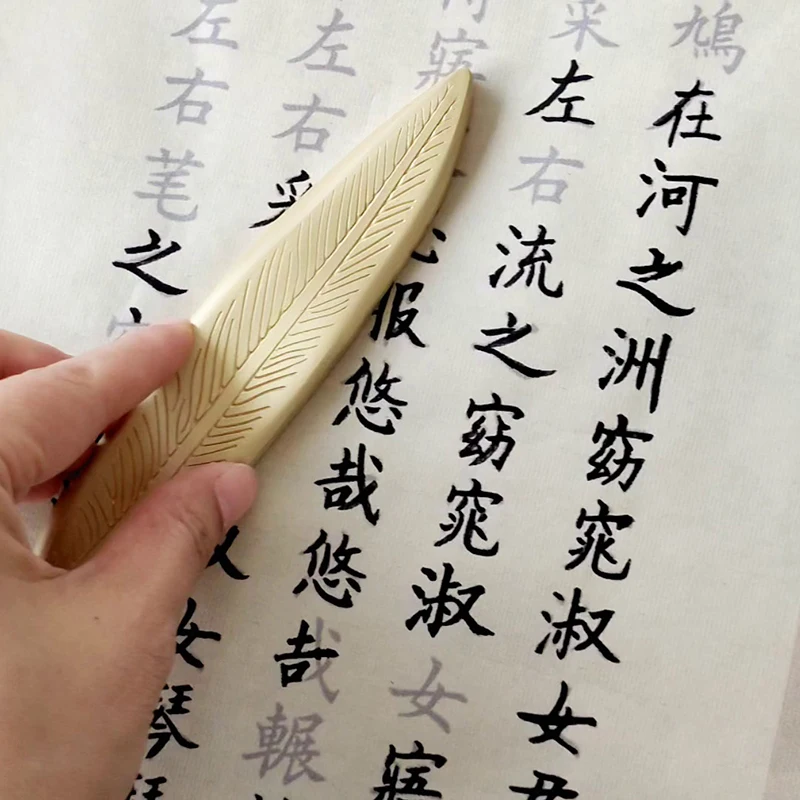 鳩在河之洲窈窕淑女
采左右流之窈窕淑女寤
寤服悠哉悠哉輾
左右采女琴
左右芼之